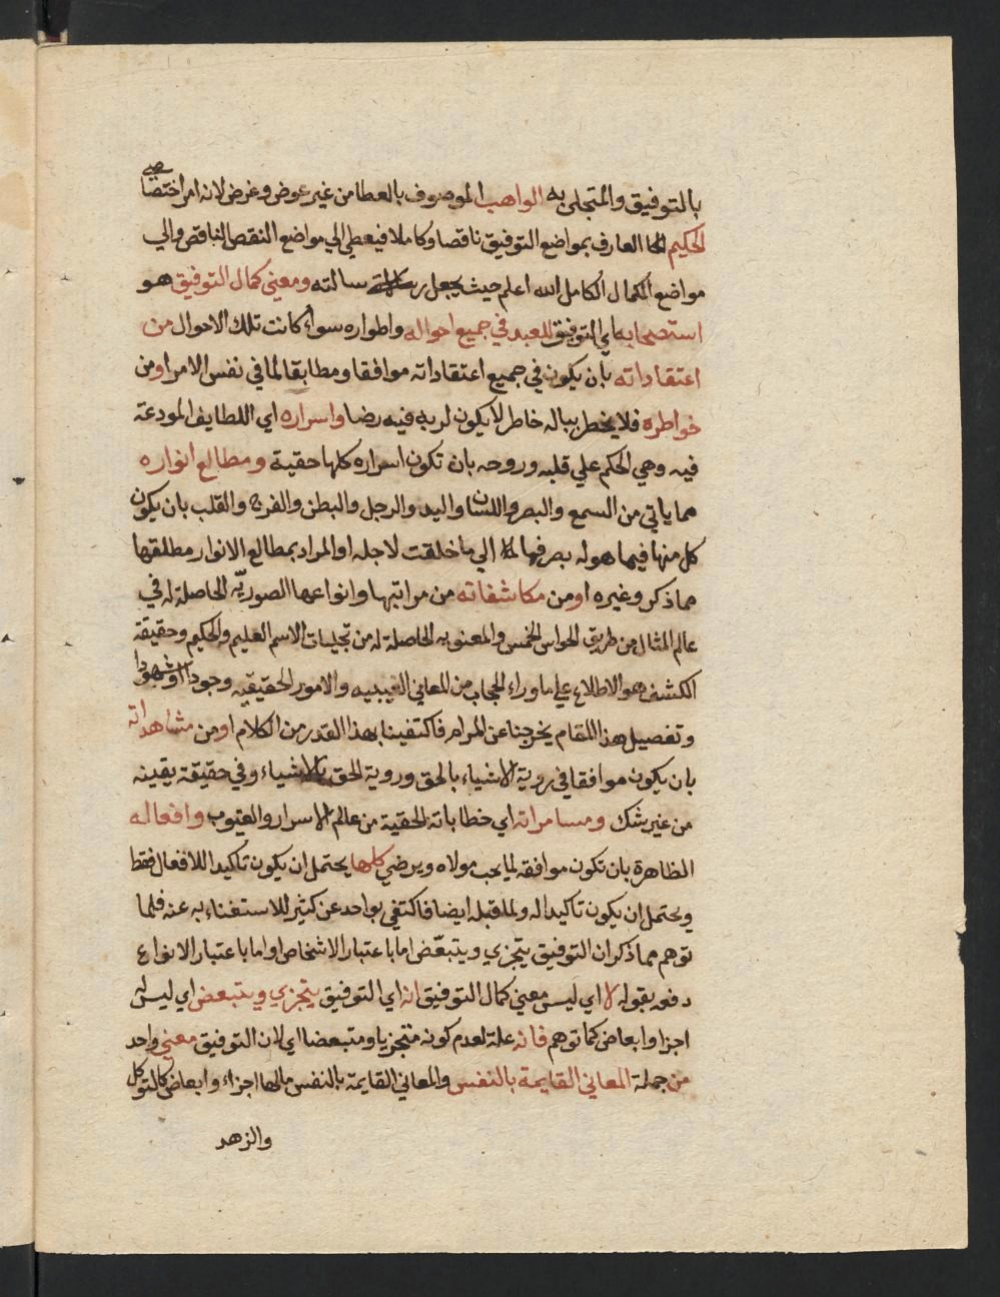 بالتوفيق والمتجلى به الواهب الموصوف بالعطا من غير عوض وغرض لانه امر اختصاصي
الحكيم العارف بمواضع التوفيق ناقصا وكاملا فيعطي الي مواضع النقص الناقص والي
مواضع الكمال الكامل الله اعلم حيث يجعل رسالته ومعني كمال التوفيق هو
استصحابه اي التوفيق للعبد في جميع احواله واطواره سواء كانت تلك الاحوال من
اعتقاداته بان يكون في جميع اعتقاداته موافقا ومطابقا لما في نفس الامر او من
خواطره فلا يخطر بباله خاطر لا يكون لربه فيه رضا واسراره اي اللطايف المودعة
فيه وهي الحكم علي قلبه وروحه بان تكون اسراره كلها حقية ومطالع انواره
مما ياتي من السمع والبصر واللسان واليد والرجل والبطن والفرج والقلب بان يكون
كل منها فيما هو له بصرفها الي ما خلقت لاجله او المراد بمطالع الانوار مطلقها
مما ذكر وغيره او من مكاشفاته من مراتبها وانواعها الصوريّه الحاصلة له في
عالم المثال من طريق الحواس الخمس والمعنويه الحاصلة له من تجليات الاسم العليم والحكيم وحقيقة
الكشف هو الاطلاع علي ما وراء الحجاب من المعاني الغيبيه والامور الحقيقيه وجودا او شهودا
وتفصيل هذا المقام يخرجنا عن المرام فاكتفينا بهذا القدر من الكلام او من مشاهداته
بان يكون موافقا في روية الاشياء بالحق وروية الحق بالاشياء وفي حقيقة يقينه
من غير شك ومسامراته اي خطاباته الحقية من عالم الاسرار والغيوب وافعاله
الظاهرة بان تكون موافقه لما يحب مولاه ويرضي كلها يحتمل ان يكون تاكيدا للافعال فقط
ويحتمل ان يكون تاكيدا له ولما قبله ايضا فاكتفي بواحد عن كثير للاستغناء به عنه فلما
توهم مما ذكر ان التوفيق يتجزي ويتبعّض اما باعتبار الاشخاص او اما باعتبار الانواع
دفعه بقوله لا اي ليس معني كمال التوفيق انه اي التوفيق يتجزي ويتبعض اي ليس له
اجزا وابعاض كما توهم فانه علة لعدم كونه متجزيا ومتبعضا اي لان التوفيق معني واحد
من جملة المعاني القايمة بالنفس والمعاني القايمة بالنفس مالها اجزاء وابعاض كالتوكل
والزهد